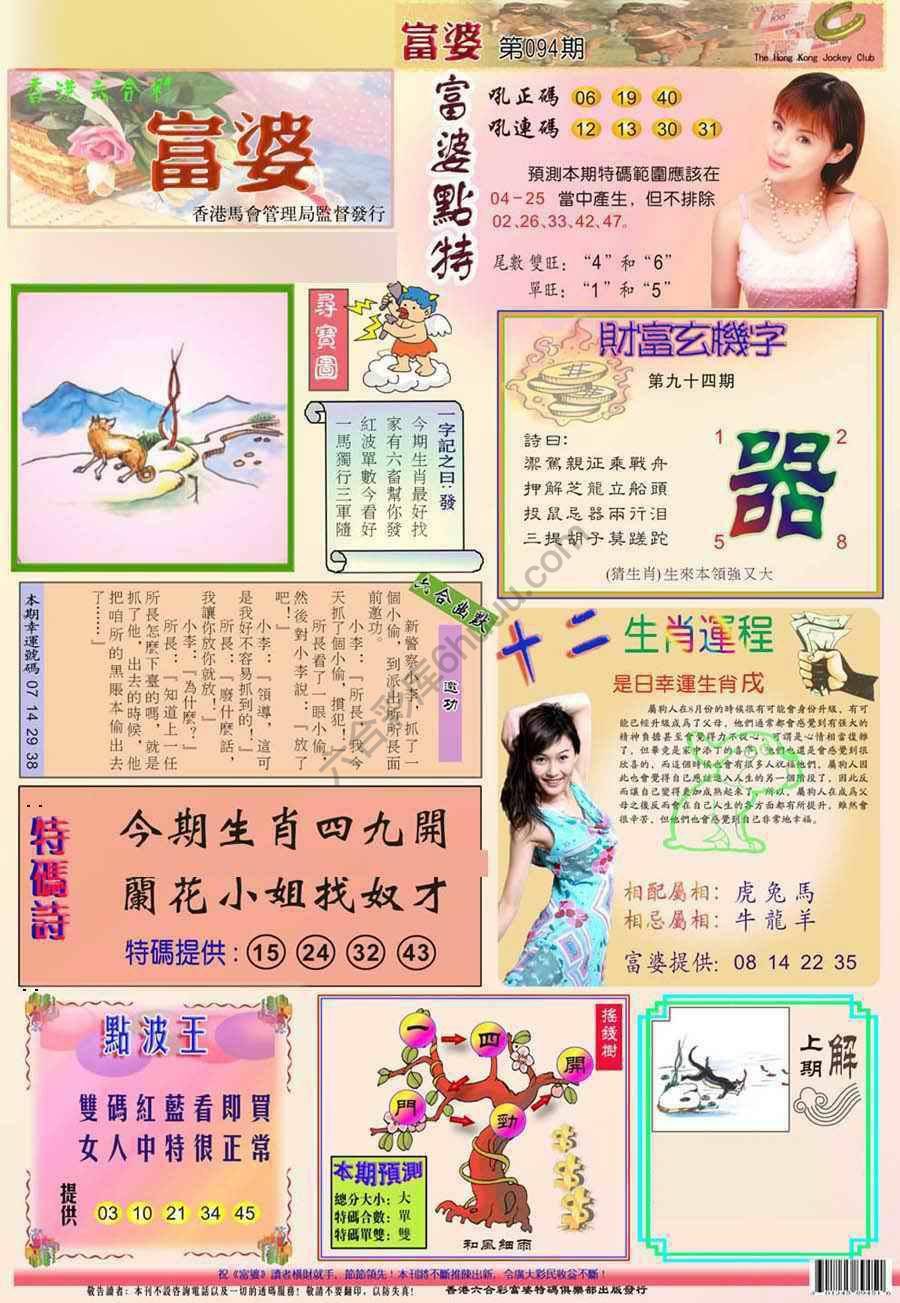 富婆 第094期
The Hong Kong Jockey Club
香港六合彩
富婆
香港馬會管理局監督發行
富婆點特
吼正碼 06 19 40
吼連碼 12 13 30 31
預測本期特碼範圍應該在
04-25 當中產生，但不排除
02、26、33、42、47。
尾數雙旺：“4”和“6”
單旺：“1”和“5”
尋寶圖
一字記之曰：發
今期生肖最好找
家有六畜幫你發
紅波單數今看好
一馬獨行三軍隨
財富玄機字
第九十四期
詩曰：
禦駕親征乘戰舟
押解芝龍立船頭
投鼠忌器兩行泪
三提胡子莫蹉跎
器
1 2
5 8
(猜生肖)生來本領強又大
六合幽默
邀功
新警察小李，抓了一
個小偷，到派出所所長面
前邀功。
小李：『所長，我今
天抓了個小偷，慣犯！』
所長看了一眼小偷，
然後對小李說：『放了
吧！』
小李：『領導，這可
是我好不容易抓到的！』
所長：『廢什麼話，
我讓你放你就放！』
小李：『為什麼？』
所長：『知道上一任
所長怎麼下臺的嗎，就是
抓了他，出去的時候，他
把咱所的黑賬本偷出去
了……』
本期幸運號碼 07 14 29 38
十二生肖運程
是日幸運生肖戌
屬狗人在8月份的時候很有可能會身份升級，有可
能已經升級成為了父母，他們通常都會感覺到有強大的
精神負擔甚至會覺得力不從心，可謂是心情相當復雜
了，但畢竟是家中添丁的喜事，他們也還是會感覺到很
欣喜的，而這個時候也會有很多人祝福他們，屬狗人因
此也會覺得自己應該進入人生的另一個階段了，因此反
而讓自己變得更加成熟起來了，所以，屬狗人在成為父
母之後反而會在自己人生的各方面都有所提升，雖然會
很辛苦，但他們也會感覺到自己非常地幸福。
相配屬相：虎兔馬
相忌屬相：牛龍羊
富婆提供：08 14 22 35
特碼詩
今期生肖四九開
蘭花小姐找奴才
特碼提供：15 24 32 43
點波王
雙碼紅藍看即買
女人中特很正常
提供 03 10 21 34 45
搖錢樹
一 四 開
門 勁
本期預測
總分大小：大
特碼合數：單
特碼單雙：雙
和風細雨
上期解
祝《富婆》讀者橫財就手，節節領先！本刊將不斷推陳出新，令廣大彩民收益不斷！
敬告讀者：本刊不設咨詢電話以及一切的透碼服務！敬請不要翻印，以防失真！ 香港六合彩富婆特碼俱樂部出版發行
六合彩库6huu.com